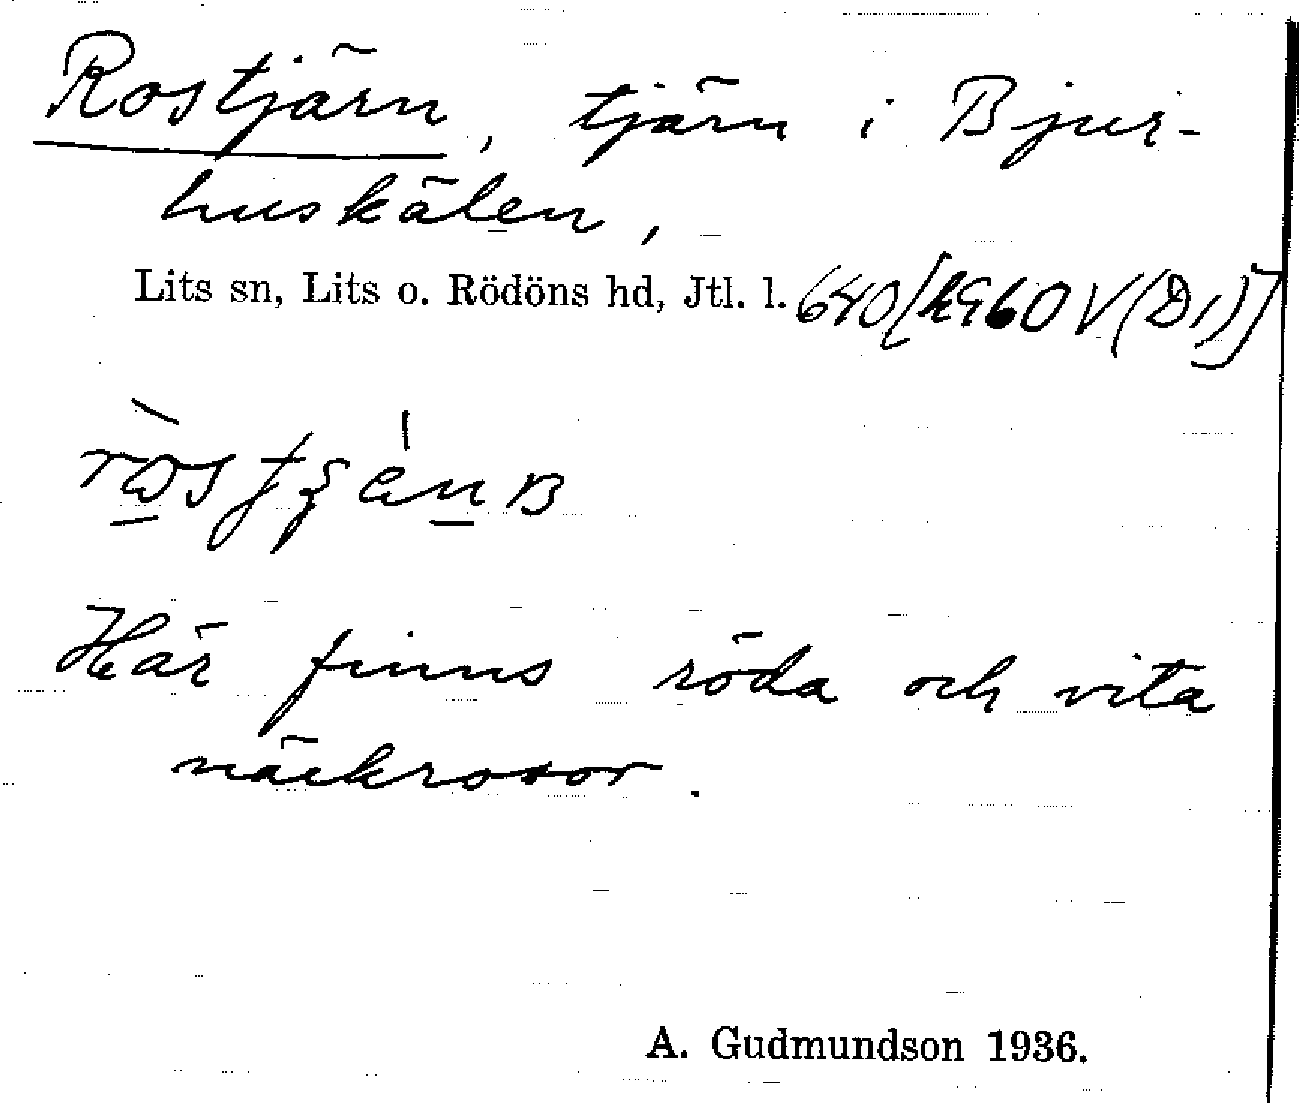 Rostjärn, tjärn i Bjur-
huskälen,
Lits sn, Lits o. Rödöns hd, Jtl. l. 640 [K960 V (D1)]
Här finns röda och vita
näckrosor.
A. Gudmundson 1936.